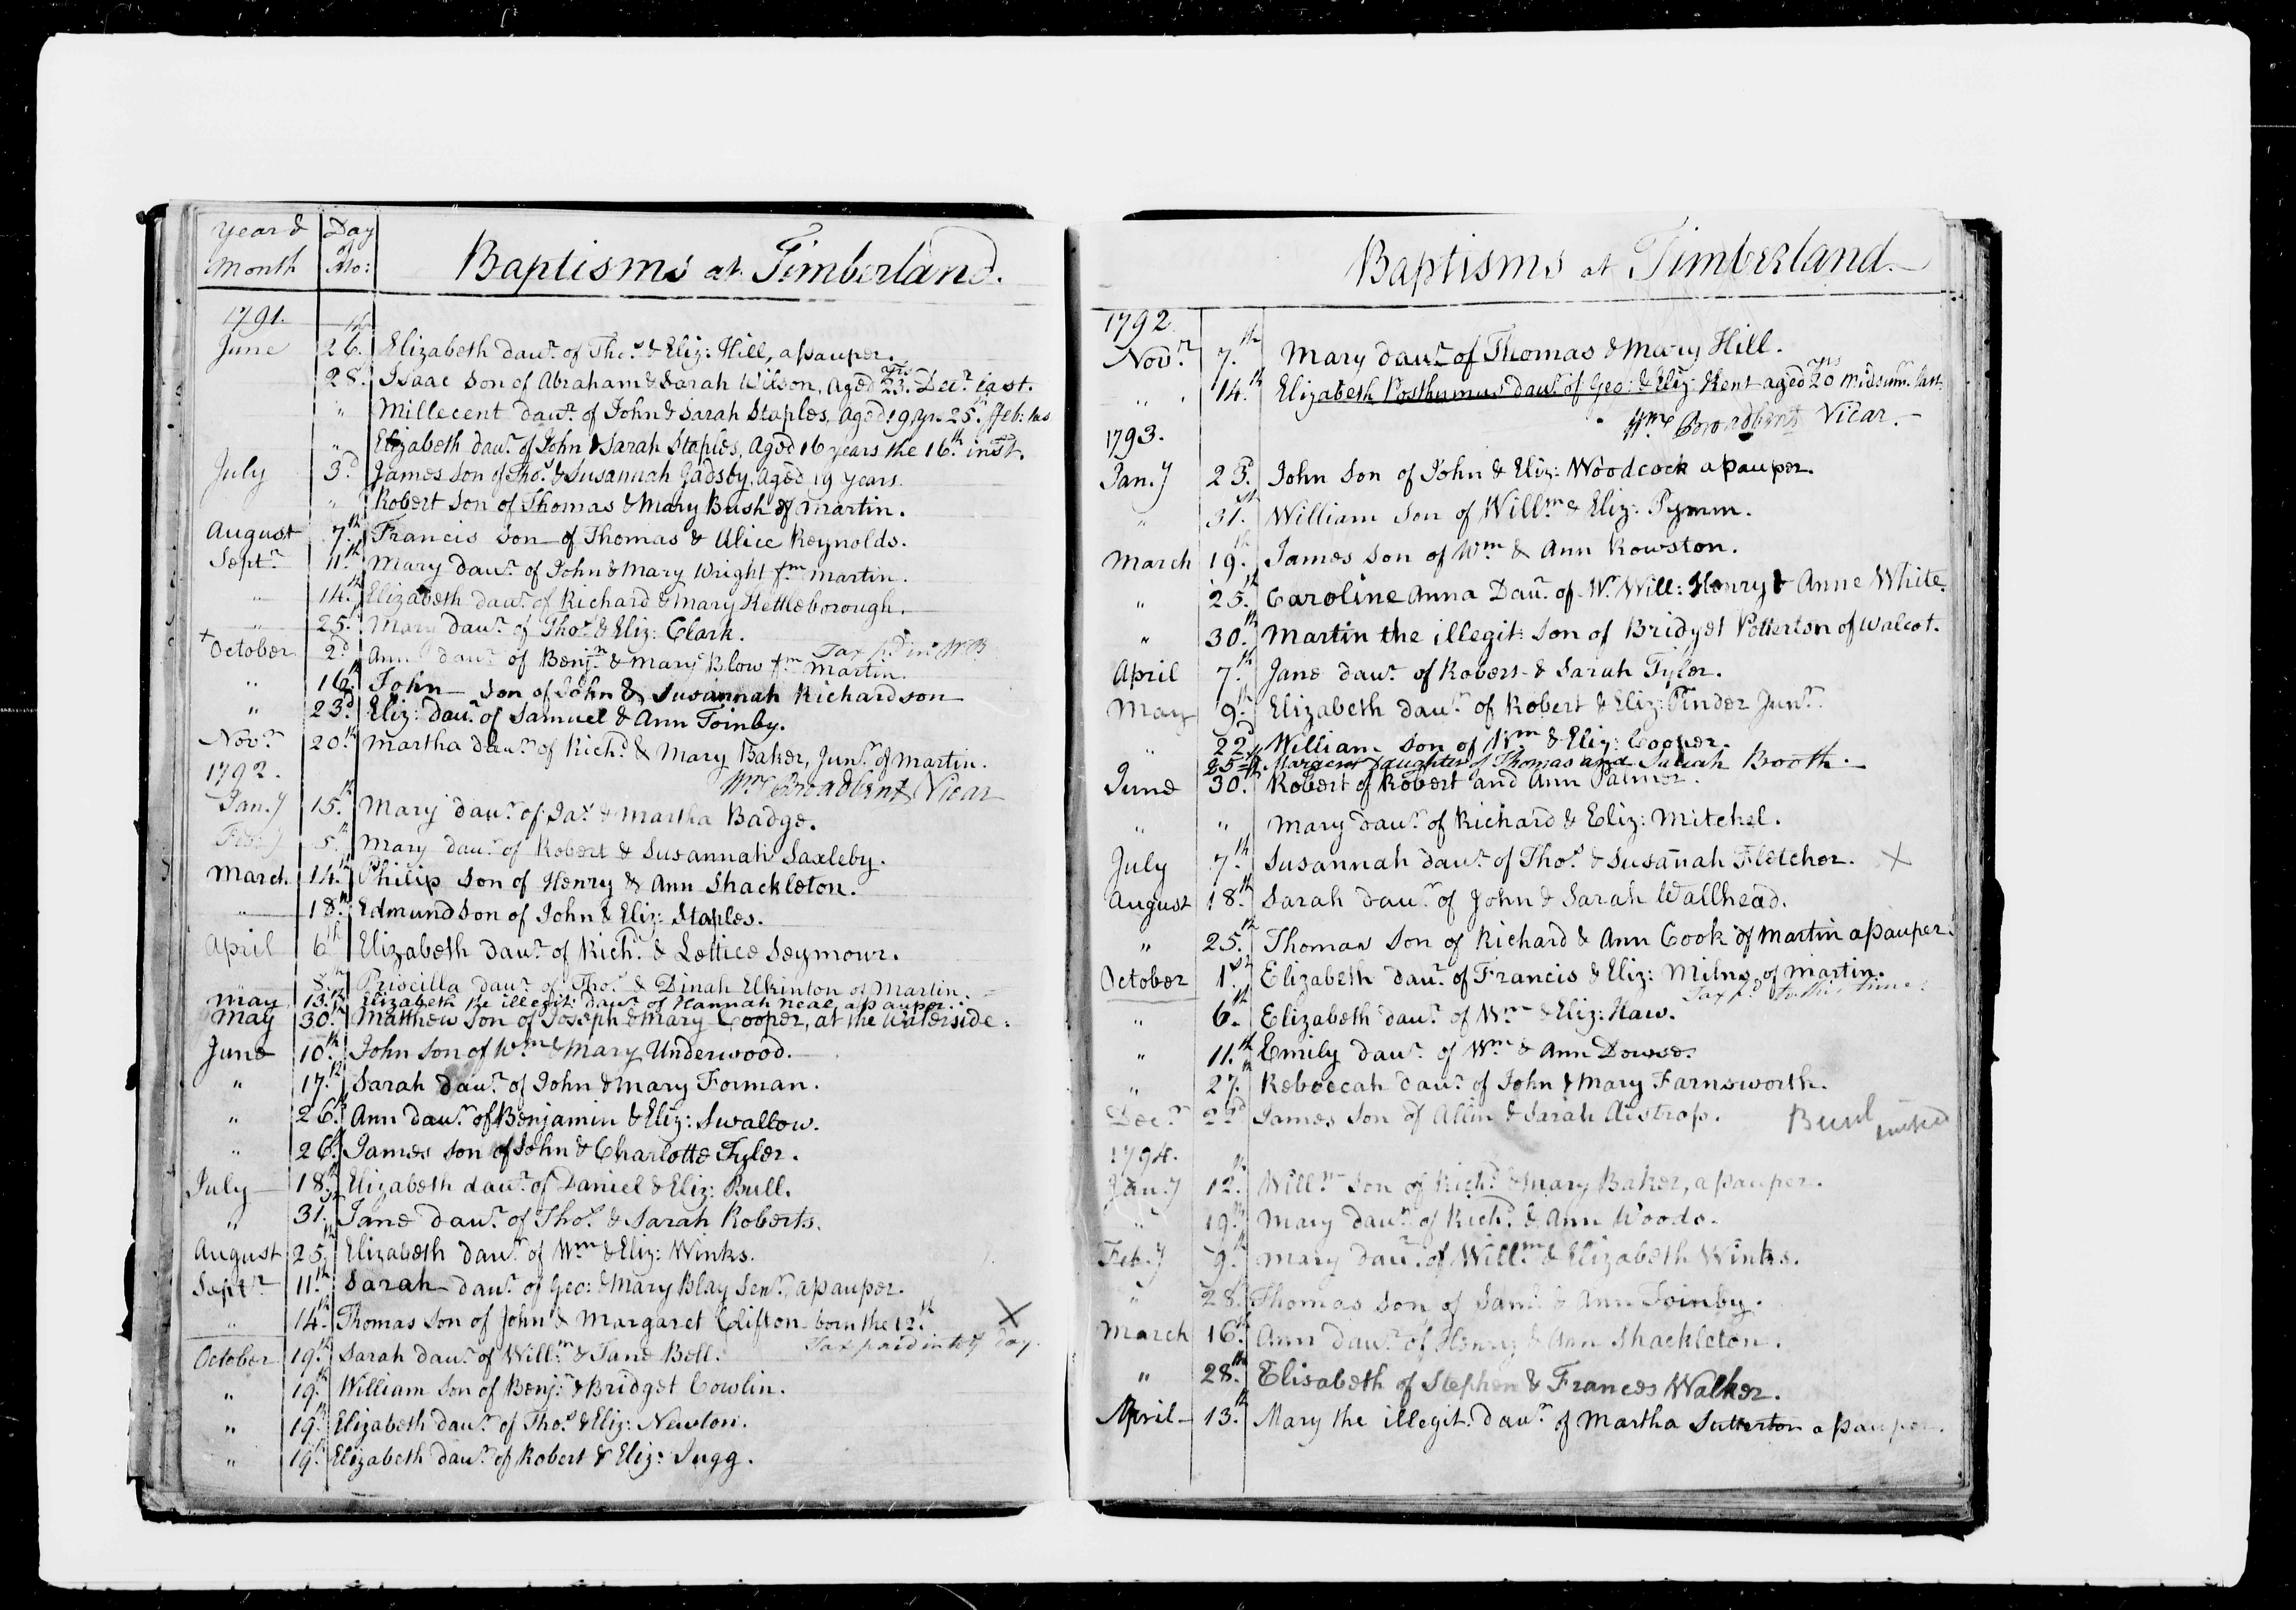 Year & Day
Month of Mo:
Baptisms at Timberland.
1791.
June 26.th Elizabeth dau.r of Tho.s & Eliz: Hill, a pauper.
28. Isaac Son of Abraham & Sarah Wilson, aged 23. yrs Dec.r last.
" Millecent dau.r of John & Sarah Staples, aged 19 yrs 25.th Feb: las
" Elizabeth dau.r of John & Sarah Staples, aged 16 years the 16.th inst.
July 3.d James son of Tho.s & Susannah Gadsby, aged 19 years.
" Robert Son of Thomas & Mary Bush of Martin.
August 7.th Francis Son of Thomas & Alice Reynolds.
Sept.r 11.th Mary dau.r of John & Mary Wright f.m Martin.
" 14.th Elizabeth dau.r of Richard & Mary Kettleborough.
" 25. Mary dau.r of Tho.s & Eliz: Clark.
Tax p.d in W.B
+ October 2.d Ann dau.r of Benj.n & Mary Blow f.m Martin.
" 16. John Son of John & Susannah Richardson
" 23.d Eliz: dau.r of Samuel & Ann Toinby.
Nov.r 20.th Martha dau.r of Rich.d & Mary Baker, Jun.r of Martin.
1792. W.m Broadbent Vicar
Jan.y 15.th Mary dau.r of Ja.s & Martha Badge.
Feb.y 5.th Mary dau.r of Robert & Susannah Saxleby.
March 14.th Philip Son of Henry & Ann Shackleton.
" 18.th Edmund son of John & Eliz: Staples.
April 6.th Elizabeth dau.r of Rich.d & Lettice Seymour.
" 8.th Priscilla dau.r of Tho.s & Dinah Elkinton of Martin.
May 13.th Elizabeth the illegit: dau.r of Hannah Neal, a pauper.
May 30.th Matthew Son of Joseph & Mary Cooper, at the Waterside.
June 10.th John son of W.m & Mary Underwood.
" 17.th Sarah dau.r of John & Mary Forman.
" 26.th Ann dau.r of Benjamin & Eliz: Swallow.
" 26.th James son of John & Charlotte Tyler.
July 18.th Elizabeth dau.r of Daniel & Eliz: Bull.
" 31.st Jane dau.r of Tho.s & Sarah Roberts.
August 25.th Elizabeth dau.r of W.m & Eliz: Winks.
Sept.r 11.th Sarah dau.r of Geo: & Mary Blay Sen.r, a pauper.
" 14.th Thomas Son of John & Margaret Clifton born the 12.th X
Tax paid into y day.
October 19.th Sarah dau.r of Will.m & Jane Bell.
" 19.th William Son of Benj.n & Bridget Cowlin.
" 19.th Elizabeth dau.r of Tho.s & Eliz: Newton.
" 19.th Elizabeth dau.r of Robert & Eliz: Jugg.
Baptisms at Timberland.
1792
Nov.r 7.th Mary dau.r of Thomas & Mary Hill.
" 14.th Elizabeth Posthumus dau.r of Geo: & Eliz: Kent aged 20 yrs Midsum.r last.
W.m Broadbent Vicar.
1793.
Jan.y 23.d John Son of John & Eliz: Woodcock a pauper.
" 31.st William Son of Will.m & Eliz: Pymm.
March 19.th James Son of W.m & Ann Rowston.
" 25.th Caroline Anna Dau.r of M.r Will: Henry & Anne White.
" 30.th Martin the illegit: Son of Bridget Potterton of Walcot.
April 7.th Jane dau.r of Robert & Sarah Tyler.
May 9.th Elizabeth dau.r of Robert & Eliz: Pinder Jun.r
" 22.d William Son of W.m & Eliz: Cooper.
25th daughter of Thomas and Booth.
June 30.th Robert of Robert and Ann Palmer.
" " Mary dau.r of Richard & Eliz: Mitchel.
July 7.th Susannah dau.r of Tho.s & Susanah Fletcher. X
August 18.th Sarah dau.r of John & Sarah Wallhead.
" 25.th Thomas Son of Richard & Ann Cook of Martin a pauper.
October 1.st Elizabeth dau.r of Francis & Eliz: Milns, of Martin.
Tax p.d to this time.
" 6.th Elizabeth dau.r of W.m & Eliz: Haw.
" 11.th Emily dau.r of W.m & Ann Dowse.
" 27.th Rebeccah dau.r of John & Mary Farnsworth.
Dec.r 2.d James Son of Allin & Sarah Aistrop.
1794.
Jan.y 12.th Will.m Son of Rich.d & Mary Baker, a pauper.
" 19.th Mary dau.r of Rich.d & Ann Woods.
Feb.y 9.th Mary dau.r of Will.m & Elizabeth Winks.
" 28. Thomas Son of Sam.l & Ann Toinby.
March 16.th Ann dau.r of Henry & Ann Shackleton.
" 28.th Elisabeth of Stephen & Frances Walker.
April 13.th Mary the illegit. dau.r of Martha Sutterton a pauper.